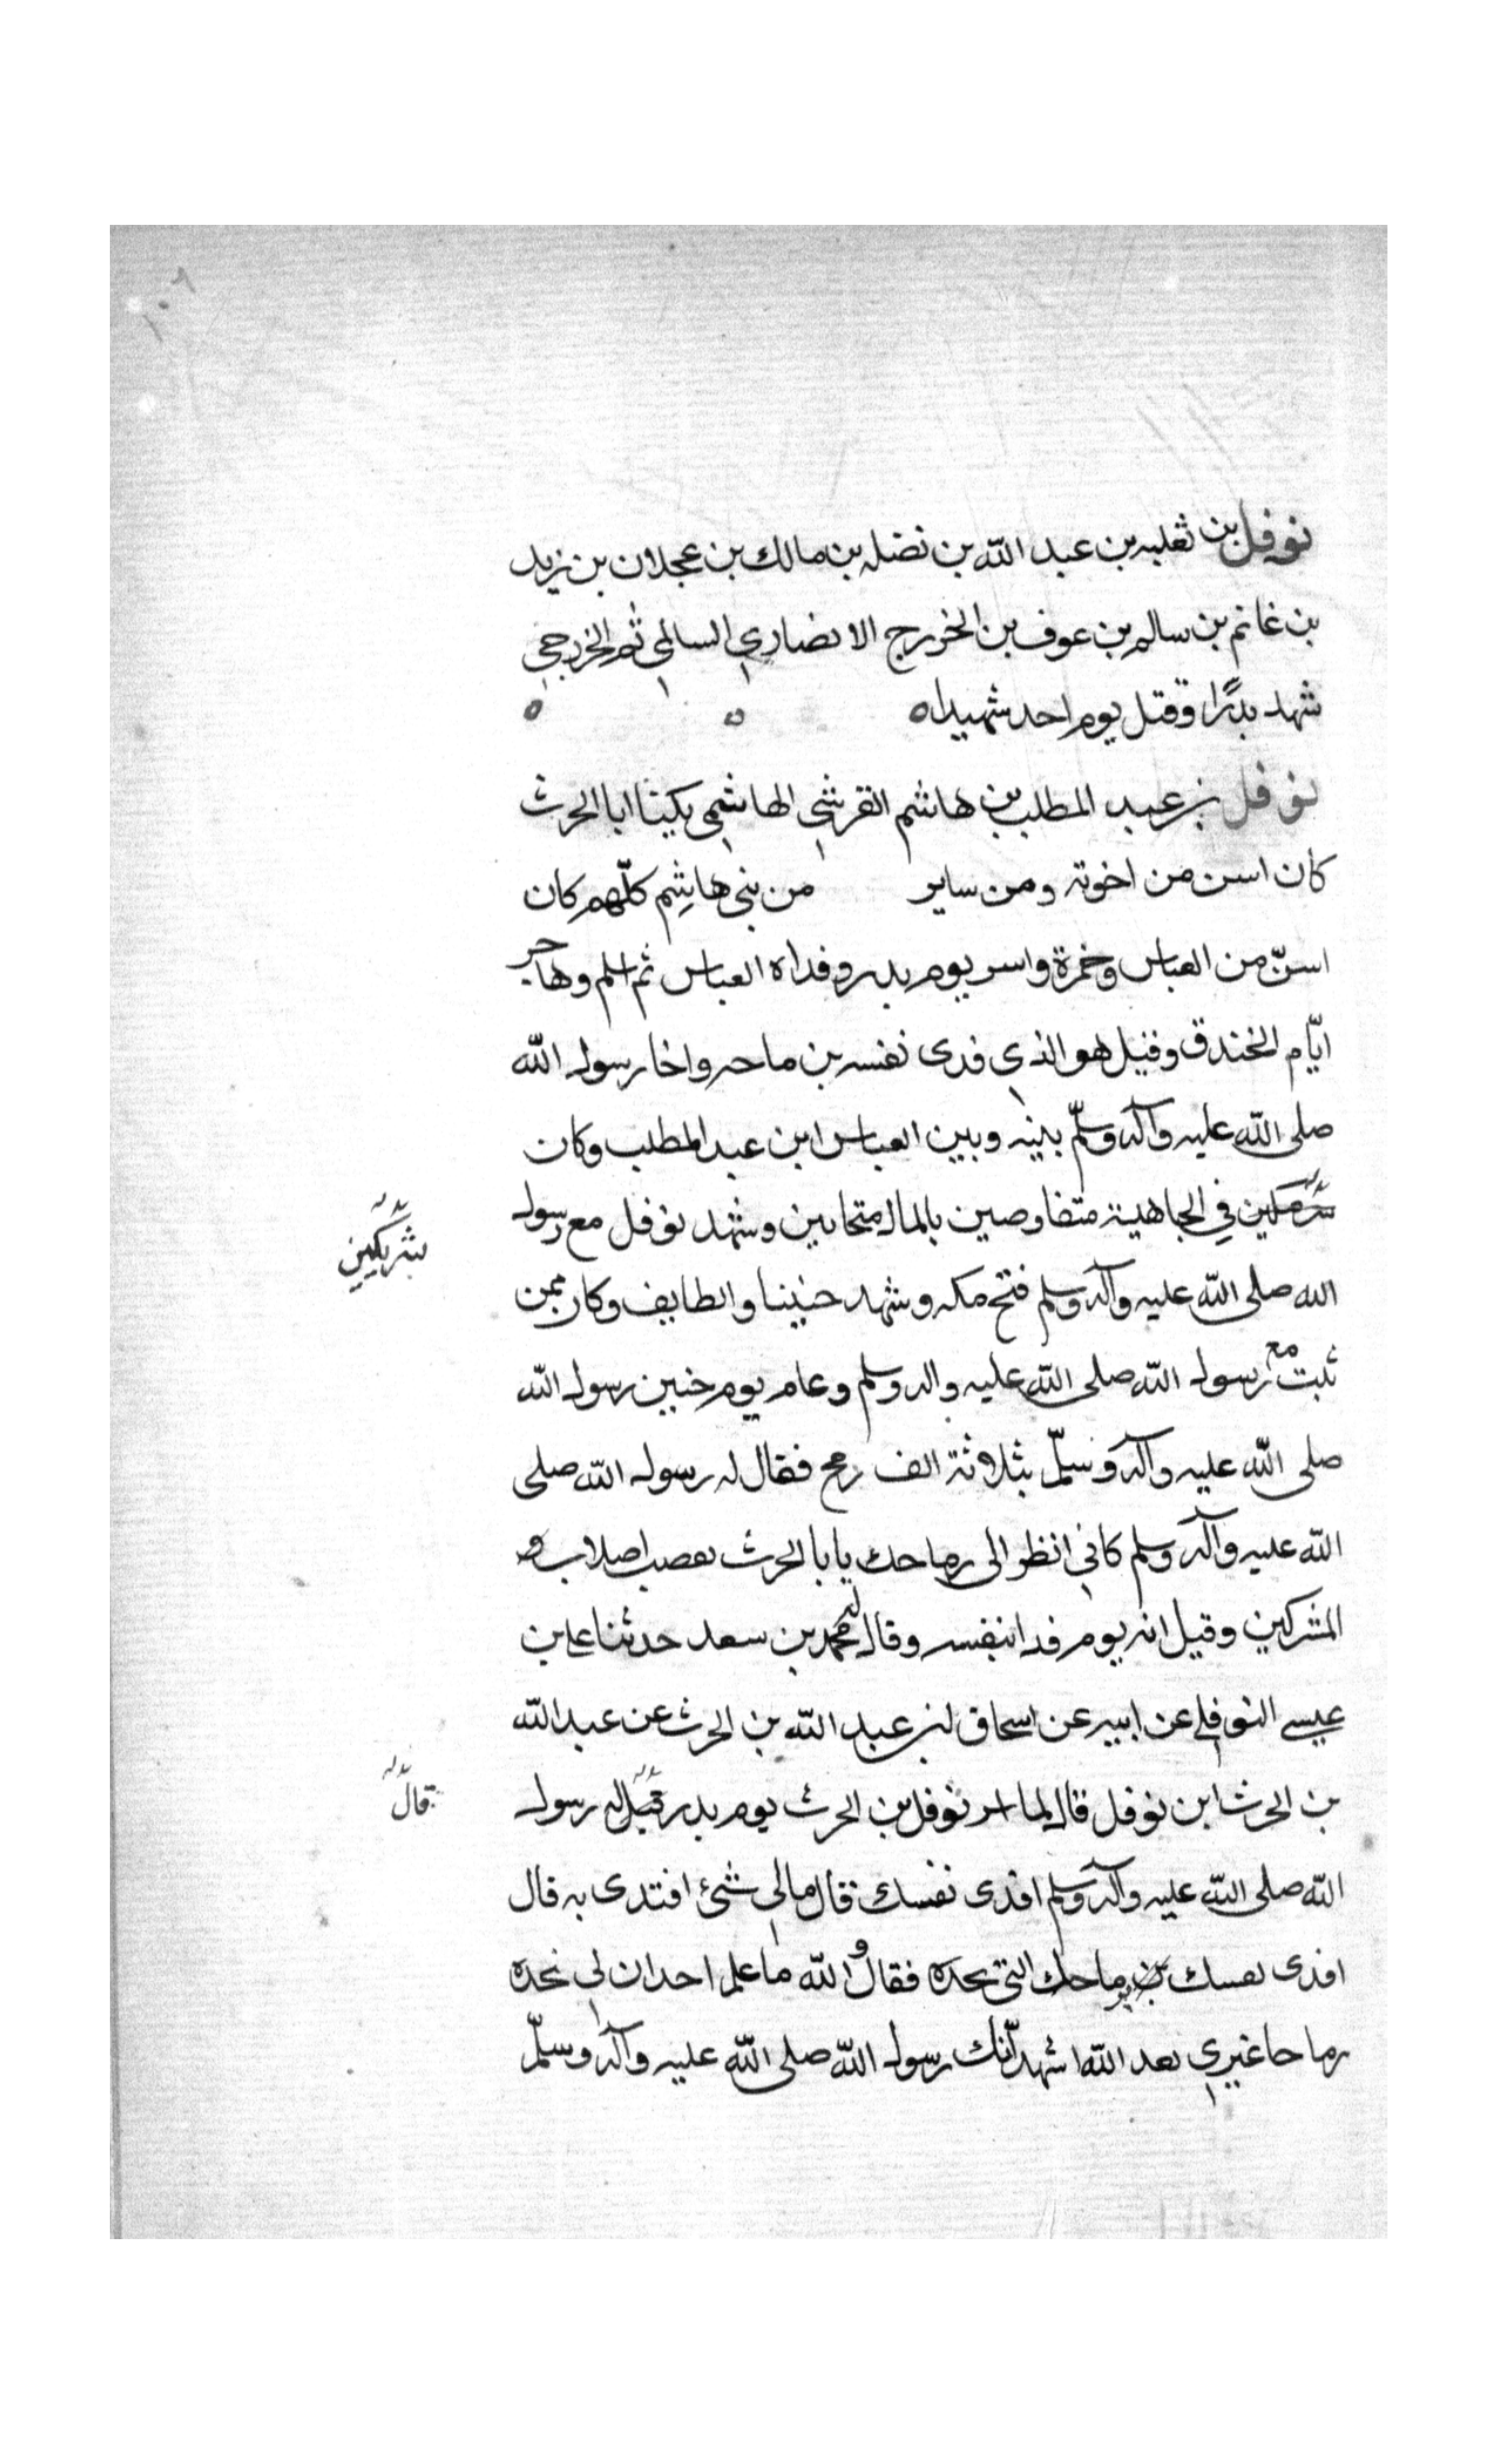 نوفل بن ثعلبه بن عبد الله بن نضله بن مالك بن عجلان بن زيد
بن غانم بن سالم بن عوف بن الخزرج الانصاري السالمي ثم الخزرجي
شهد بدرًا وقتل يوم احد شهيدا ه ه ه
نوفل بن عبد المطلب بن هاشم القرشي الهاشمي يكينا ابا الحرث
كان اسن من اخوته ومن ساير من بني هاشم كلّهم كان
اسنّ من العباس وحمزة واسر يوم بدر وفداه العباس ثم اسلم وهاجر
ايّام الخندق وقيل هو الذي فدى نفسه بن ماحه واخا رسول الله
صلى الله عليه وآله وسلّم بينه وبين العباس ابن عبد المطلب وكان
في الجاهلية متفاوصين بالمال متحابين وشهد نوفل مع رسول
شريكين
الله صلى الله عليه وآله وسلم فتح مكه وشهد حنينا والطايف وكان ممن
ثبت مع رسول الله صلى الله عليه واله وسلم وعام يوم حنين رسول الله
صلى الله عليه وآله وسلّم بثلاثة الف رمح فقال له رسول الله صلى
الله عليه وآله وسلم كاني انظر الى رماحك يابا الحرث تعصب اصلاب
المشركين وقيل انه يوم فدا بنفسه وقال محمد بن سعد حدثنا على بن
عيسى النوفلي عن ابيه عن اسحاق بن عبد الله بن الحرث عن عبد الله
بن الحرث ابن نوفل قال لما اسر نوفل بن الحرث يوم بدر قيل له رسول
قال
الله صلى الله عليه وآله وسلم افدى نفسك قال مالي شئ افتدى به قال
افدى نفسك برماحك التي بجده فقال والله ما علم احد ان لي بجده
رماحا غيري بعد الله اشهد انّك رسول الله صلى الله عليه وآله وسلّم